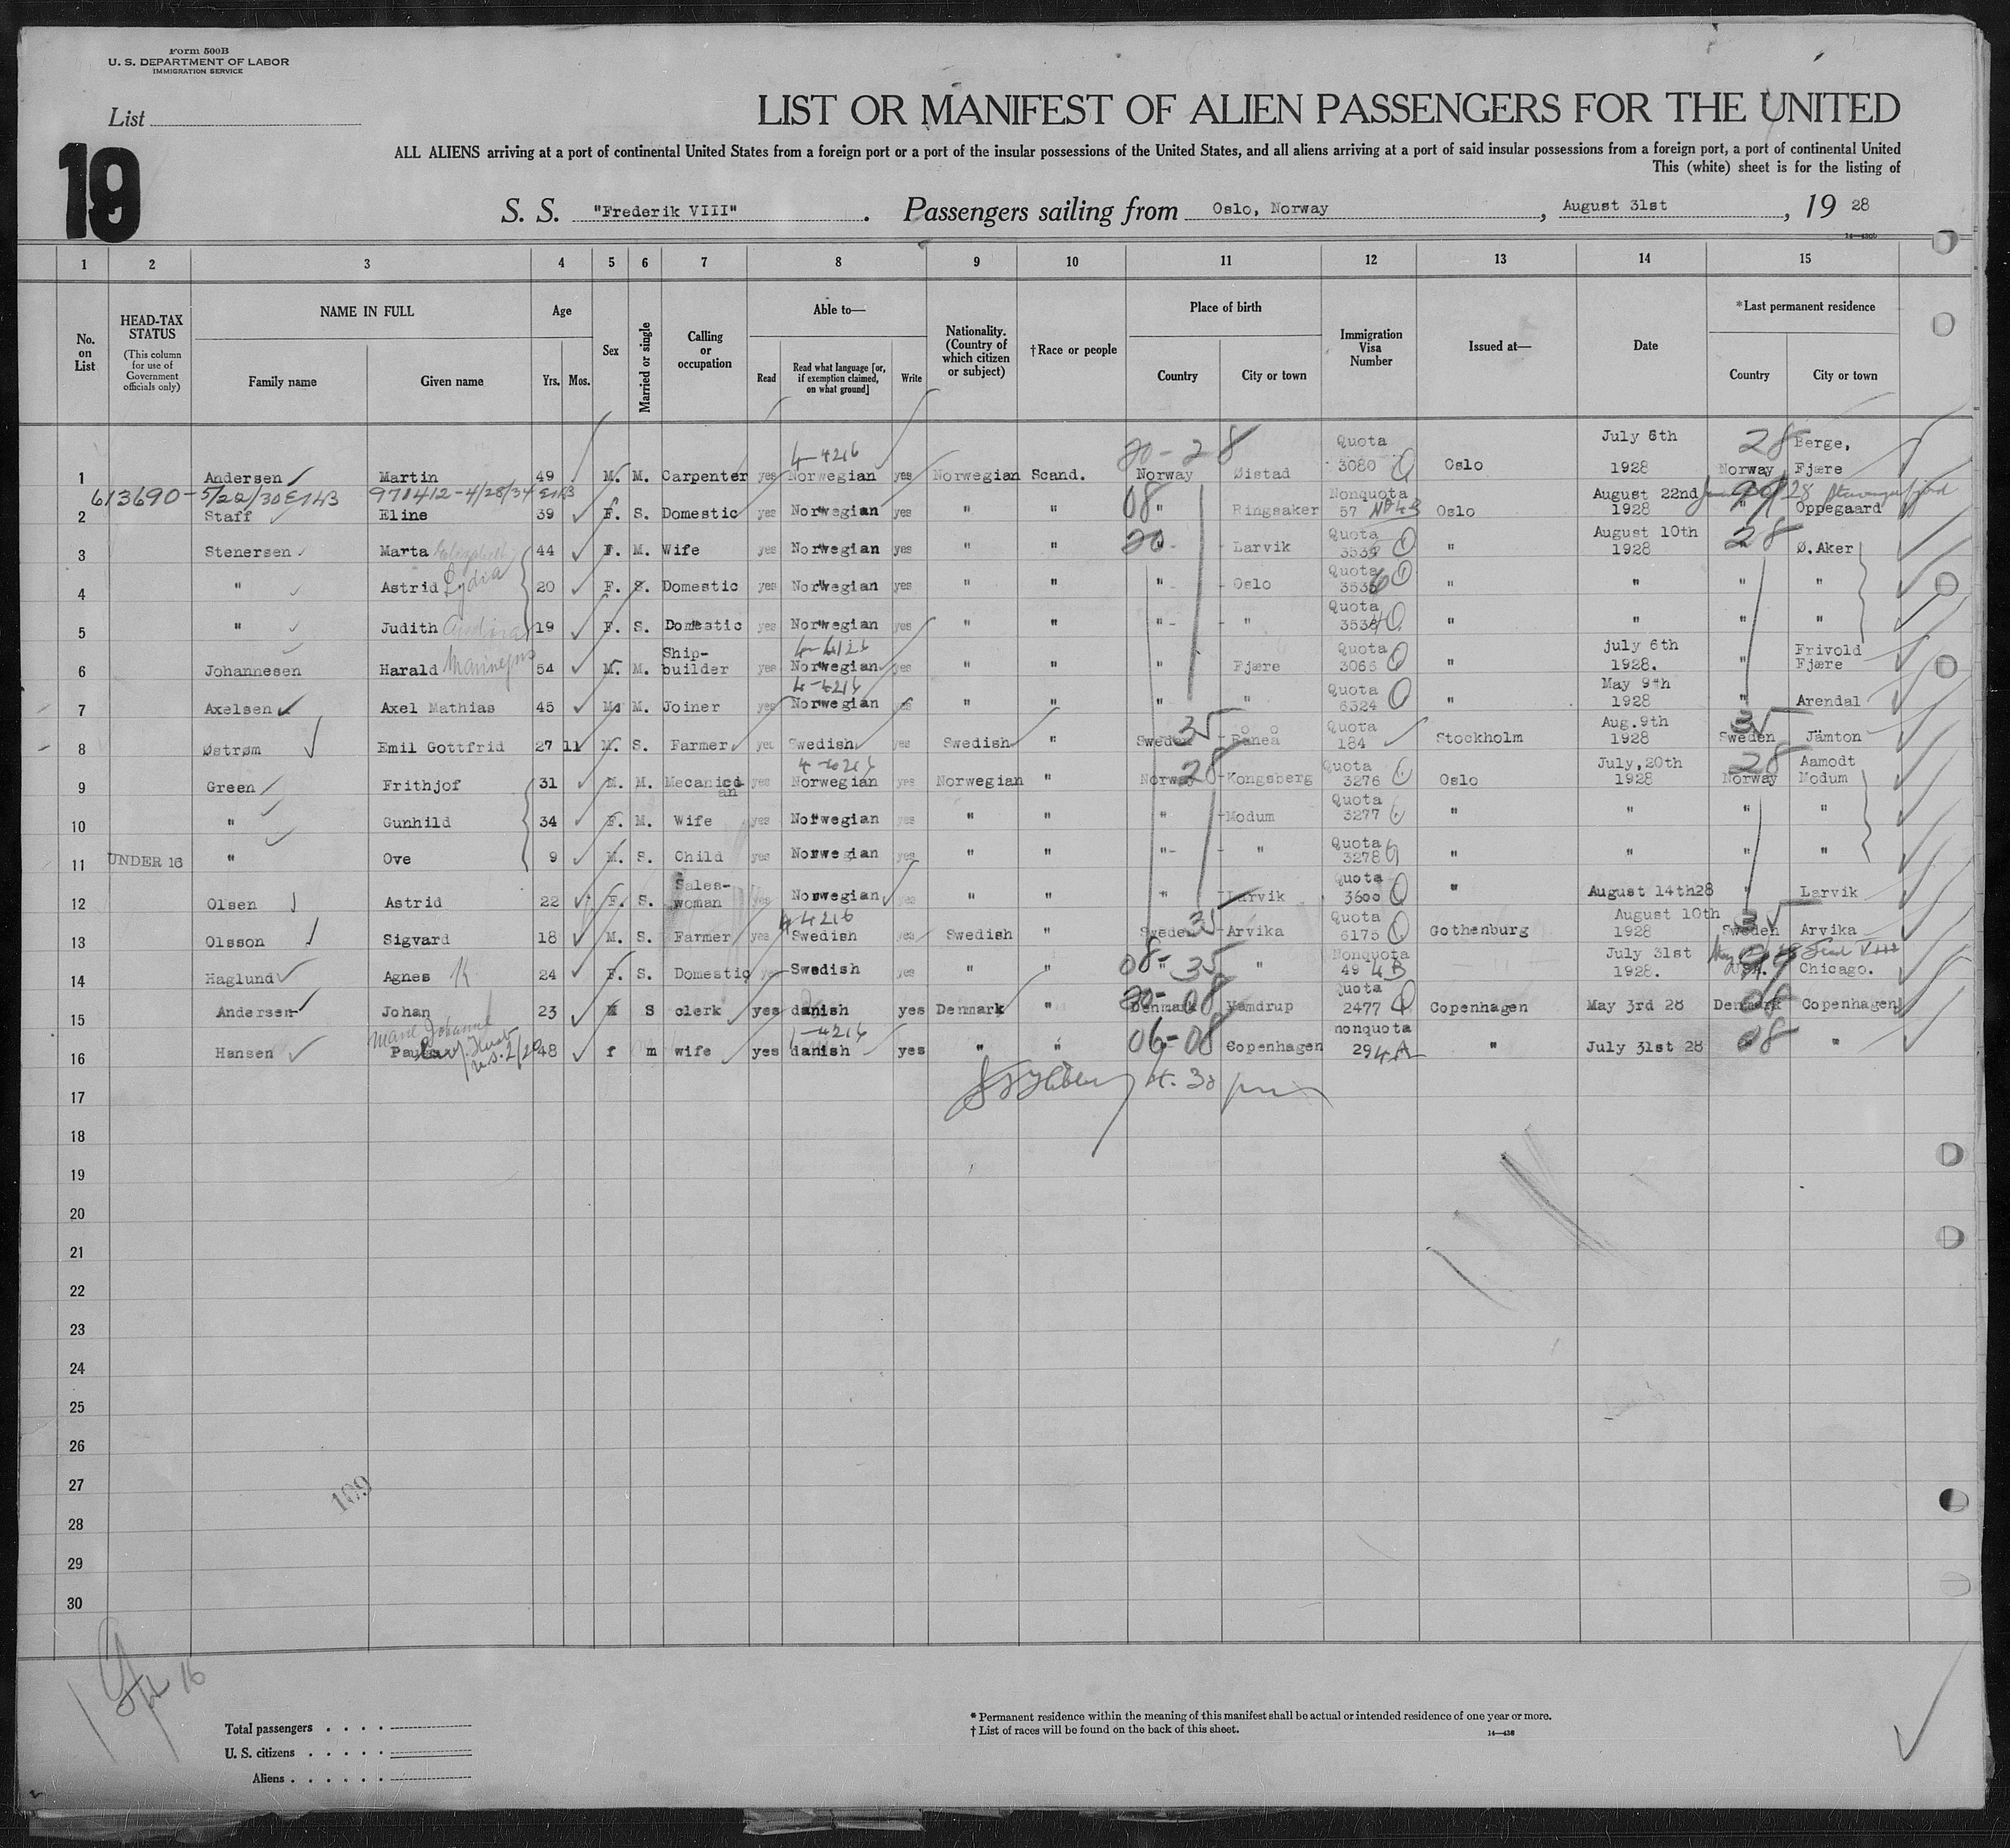 Form 500B
U. S. DEPARTMENT OF LABOR
IMMIGRATION SERVICE
List
19
LIST OR MANIFEST OF ALIEN PASSENGERS FOR THE UNITED
ALL ALIENS arriving at a port of continental United States from a foreign port or a port of the insular possessions of the United States, and all aliens arriving at a port of said insular possessions from a foreign port, a port of continental United
This (white) sheet is for the listing of
S. S. "Frederik VIII". Passengers sailing from Oslo, Norway, August 31st, 19 28
1 2 3 4 5 6 7 8 9 10 11 12 13 14 15
No. on List
HEAD-TAX STATUS (This column for use of Government officials only)
NAME IN FULL Family name Given name
Age Yrs. Mos.
Sex
Married or single
Calling or occupation
Able to— Read Read what language [or, if exemption claimed, on what ground] Write
Nationality. (Country of which citizen or subject)
†Race or people
Place of birth Country City or town
Immigration Visa Number
Issued at—
Date
*Last permanent residence Country City or town
20-28 4-4216 28
1 Andersen Martin 49 M. M. Carpenter yes Norwegian yes Norwegian Scand. Norway Øistad Quota 3080 Oslo July 6th 1928 Norway Berge, Fjære
613690-5/22/30 971412-4/28/34
2 Staff Eline 39 F. S. Domestic yes Norwegian yes " " 08 " Ringsaker Nonquota 57 Oslo August 22nd 1928 " Oppegaard
3 Stenersen Marta Elizabeth 44 F. M. Wife yes Norwegian yes " " 20 Larvik Quota " August 10th 1928 28 Ø.Aker
4 " Astrid Lydia 20 F. S. Domestic yes Norwegian yes " " " Oslo Quota " " " "
5 " Judith 19 F. S. Domestic yes Norwegian yes " " " " Quota " " " "
6 Johannesen Harald 54 M. M. Ship-builder yes Norwegian yes " " " Fjære Quota 3066 " july 6th 1928. " Frivold Fjære
7 Axelsen Axel Mathias 45 M. M. Joiner yes Norwegian yes " " " " Quota 6324 " May 9th 1928 " Arendal
8 Østrøm Emil Gottfrid 27 11 M. S. Farmer yes Swedish yes Swedish " Sweden 35 Ranea Quota 184 Stockholm Aug. 9th 1928 Sweden 35 Jämton
9 Green Frithjof 31 M. M. yes Norwegian yes Norwegian " Norway 28 Kongsberg Quota 3276 Oslo July, 20th 1928 Norway 28 Aamodt Modum
10 " Gunhild 34 F. M. Wife yes Norwegian yes " " " Modum Quota 3277 " " " "
11 UNDER 16 " Ove 9 M. S. Child yes Norwegian yes " " " " Quota 3278 " " " "
12 Olsen Astrid 22 F. S. Sales-woman yes Norwegian yes " " " Larvik Quota 3600 " August 14th28 " Larvik
13 Olsson Sigvard 18 M. S. Farmer yes Swedish yes Swedish " Sweden 35 Arvika Quota 6175 Gothenburg August 10th 1928 Sweden 35 Arvika
14 Haglund Agnes K 24 F. S. Domestic yes Swedish yes " " 08-35 " " Nonquota 49 4B July 31st 1928. U.S.A. Chicago.
15 Andersen Johan 23 M S clerk yes danish yes Denmark " Denmark Vamdrup Quota 2477 Copenhagen May 3rd 28 Denmark 08 Copenhagen
16 Hansen 48 f m wife yes danish yes " " 06-08 Copenhagen nonquota 29 4A " July 31st 28 08 "
4.30 pm
17
18
19
20
21
22
23
24
25
26
27
28
29
30
109
16
Total passengers
U. S. citizens
Aliens
* Permanent residence within the meaning of this manifest shall be actual or intended residence of one year or more.
† List of races will be found on the back of this sheet.
14—436